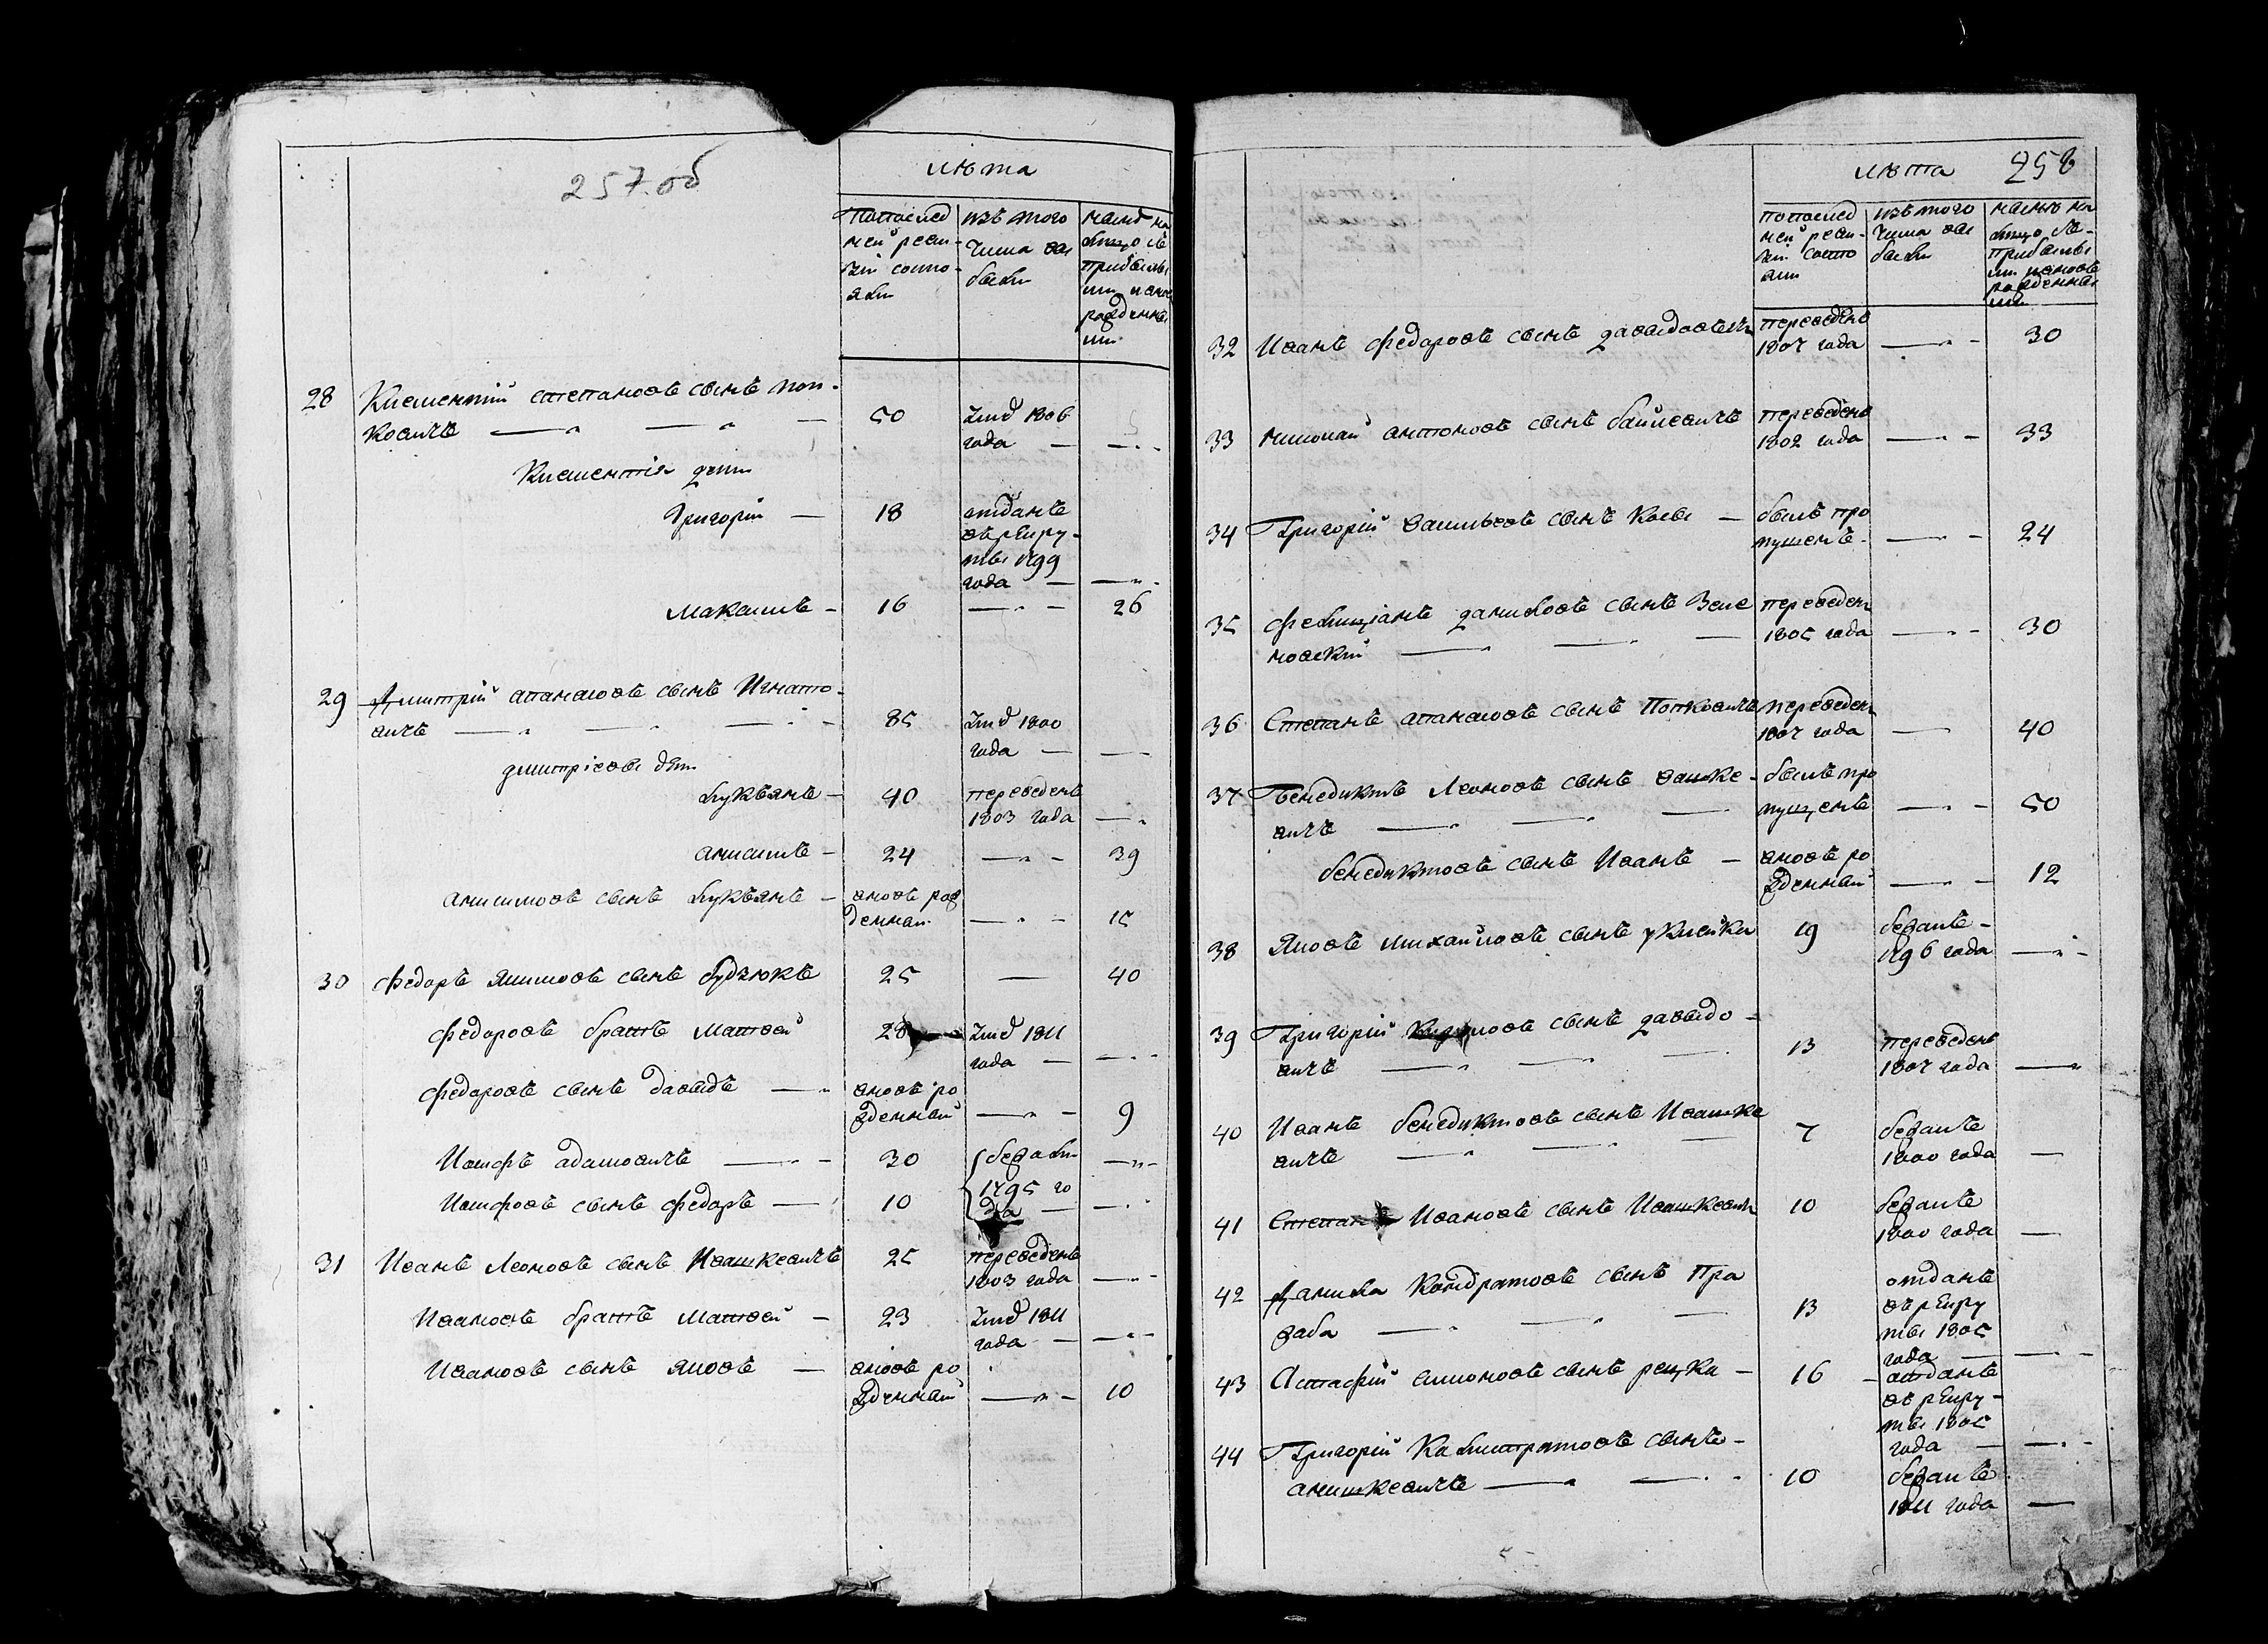 257.об
лѣта
попослед
ней реви-
зіи состо-
яли
изъ того
числа вы
были
ныне на
лицо съ
прибылы
ми и внов
рожденны
ми
28 Климентий степановъ сынъ поп-
ковичъ
50
Умер 1806
года
Климентія дети
Григорий
18
отданъ
врекру-
ты 1799
года
Максимъ
16
26
29 Дмитрий апанасовъ сынъ Игнато-
вичъ
85
Умер 1800
года
дмитріевы дети
Лукьянъ
40
переведенъ
1803 года
анисимъ
24
39
анисимовъ сынъ Лукьянъ
вновь рож
денный
15
30 Федоръ Якимовъ сынъ будзюкъ
25
40
Федоровъ братъ Матвей
28
Умер 1811
года
Федоровъ сынъ давыдъ
вновь ро
жденный
9
Иосифъ адамовичъ
30
бежали
Иосифовъ сынъ Федоръ
10
1795 го
да
31 Иванъ Леоновъ сынъ Ивашкевичъ
25
переведенъ
1803 года
Ивановъ братъ Матвей
23
Умер 1811
года
Ивановъ сынъ Яковъ
вновь ро
жденный
10
258
лѣта
попослед
ней реви-
зіи состо
яли
изъ того
числа вы
были
ныне на
лицо съ
прибылы
ми и вновь
рожденны
ми
32 Иванъ Федоровъ сынъ давыдовичъ
переведенъ
1807 года
30
33 Николай антоновъ сынъ
переведенъ
1802 года
33
34 Григорий Васильевъ сынъ
былъ про
пущенъ
24
35 Фелиціанъ даниловъ сынъ Зеле
новский
переведен
1805 года
30
36 Степанъ апанасовъ сынъ Попковичъ
переведен
1807 года
40
37 Бенедиктъ Леоновъ сынъ Ивашке-
вичъ
былъ про
пущенъ
50
бенедиктовъ сынъ Иванъ
вновь ро
жденный
12
38 Яковъ михайловъ сынъ
19
бежалъ
1796 года
39 Григорий сынъ давыдо-
вичъ
13
переведенъ
1807 года
40 Иванъ бенедиктовъ сынъ Ивашке
вичъ
7
бежалъ
1800 года
41 Степанъ Ивановъ сынъ Ивашкевич
10
бежалъ
1800 года
42 Данила Кондратовъ сынъ Пра
жаба
13
отданъ
врекру
ты 1805
года
43 Астафий симоновъ сынъ рецка
16
отданъ
врекру-
ты 1805
года
44 Григорий Калистратовъ сынъ
анишкевичъ
10
бежалъ
1811 года